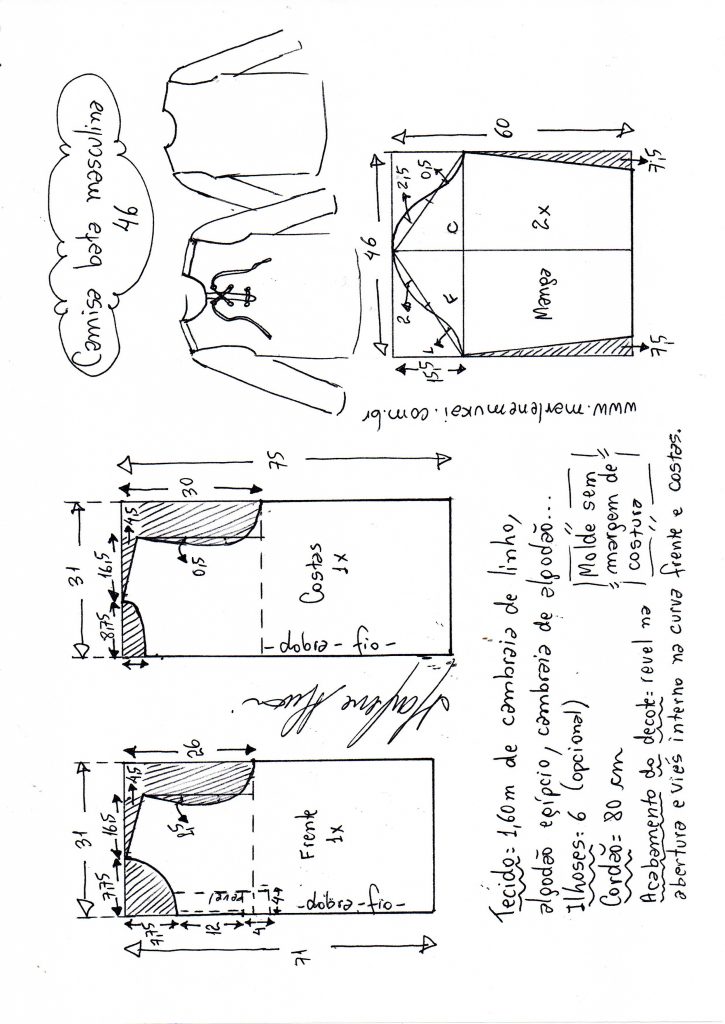 Camisa bata masculina
46
31
7,75
16,5
4,5
26
1,5
7,75
12
4
4
revel
dobra-fio-
Frente
1x
71
31
8,75
16,5
4,5
30
0,5
dobra-fio-
Costas
1x
75
Marlene Mukai
www.marlenemukai.com.br
46
60
15,5
1
2
2,5
0,5
F
C
Manga
2x
7,5
7,5
Tecido= 1,60m de cambraia de linho,
algodão egípcio, cambraia de algodão...
Ilhoses= 6 (opcional)
Cordão= 80 cm
Acabamento do decote= revel na
abertura e viés interno na curva frente e costas.
Molde sem
margem de
costura